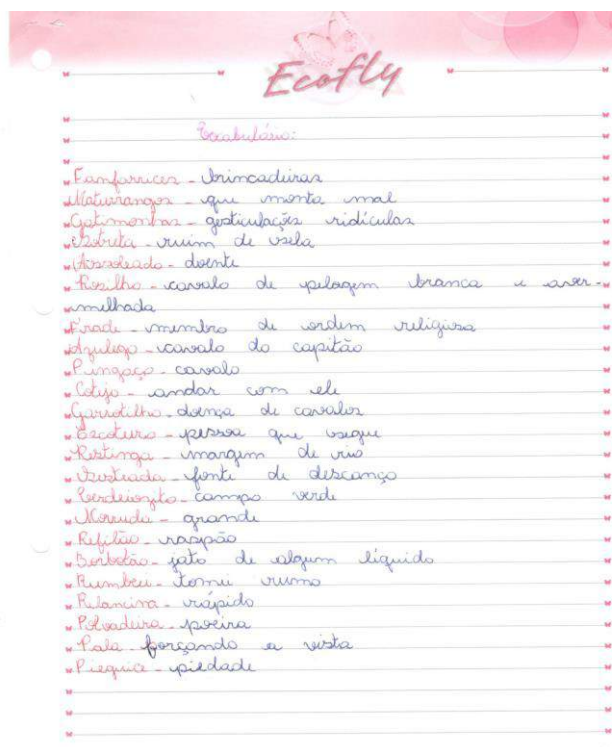 Ecofly
Vocabulário:
Fanfarrices - brincadeiras
Maturrangos - que monta mal
Gatimonhas - gesticulações ridículas
sobreta - ruim de sela
Assoleado - doente
Rosilho - cavalo de pelagem branca e aver-
melhada
Frade - membro de ordem religiosa
Azulego - cavalo do capitão
Pingaço - cavalo
Cotejo - andar com ele
Garrotilho - doença de cavalos
Escoteiro - pessoa que segue
Restinga - margem de rio
fonte de descanço
Verdeiozito - campo verde
Morruda - grande
Refilão - raspão
Borbotão - jato de algum líquido
Rumbeei - tomei rumo
Relancina - rápido
Polvadeira - poeira
Pala - forçando a vista
Pieguice - piedade